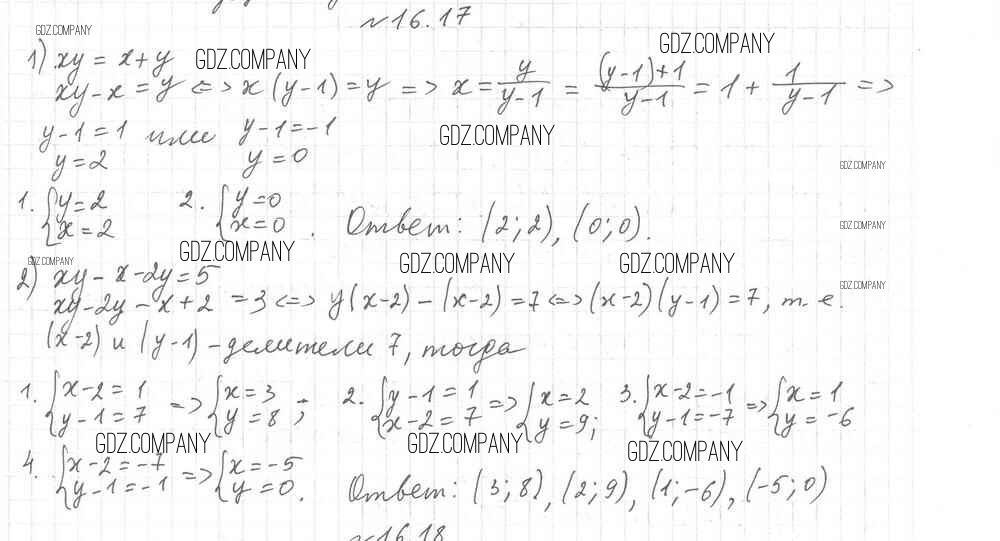 №16.17
GDZ.COMPANY
1) xy = x+y GDZ.COMPANY GDZ.COMPANY
xy-x = y <=> x(y-1)=y => x = y/(y-1) = ((y-1)+1)/(y-1) = 1 + 1/(y-1) =>
y-1=1 или y-1=-1 GDZ.COMPANY
y=2 y=0 GDZ.COMPANY
1. {y=2 2. {y=0
{x=2 {x=0 . Ответ: (2;2), (0;0). GDZ.COMPANY
GDZ.COMPANY GDZ.COMPANY GDZ.COMPANY GDZ.COMPANY
2) xy-x-2y=5
xy-2y-x+2 =3 <=> y(x-2)-(x-2)=7 <=> (x-2)(y-1)=7, т.е. GDZ.COMPANY
(x-2) и (y-1) - делители 7, тогда
1. {x-2=1 => {x=3 2. {y-1=1 => {x=2 3. {x-2=-1 => {x=1
{y-1=7 {y=8 ; {x-2=7 {y=9; {y-1=-7 {y=-6
GDZ.COMPANY GDZ.COMPANY GDZ.COMPANY
4. {x-2=-7 => {x=-5
{y-1=-1 {y=0. Ответ: (3;8), (2;9), (1;-6), (-5;0)
№16.18